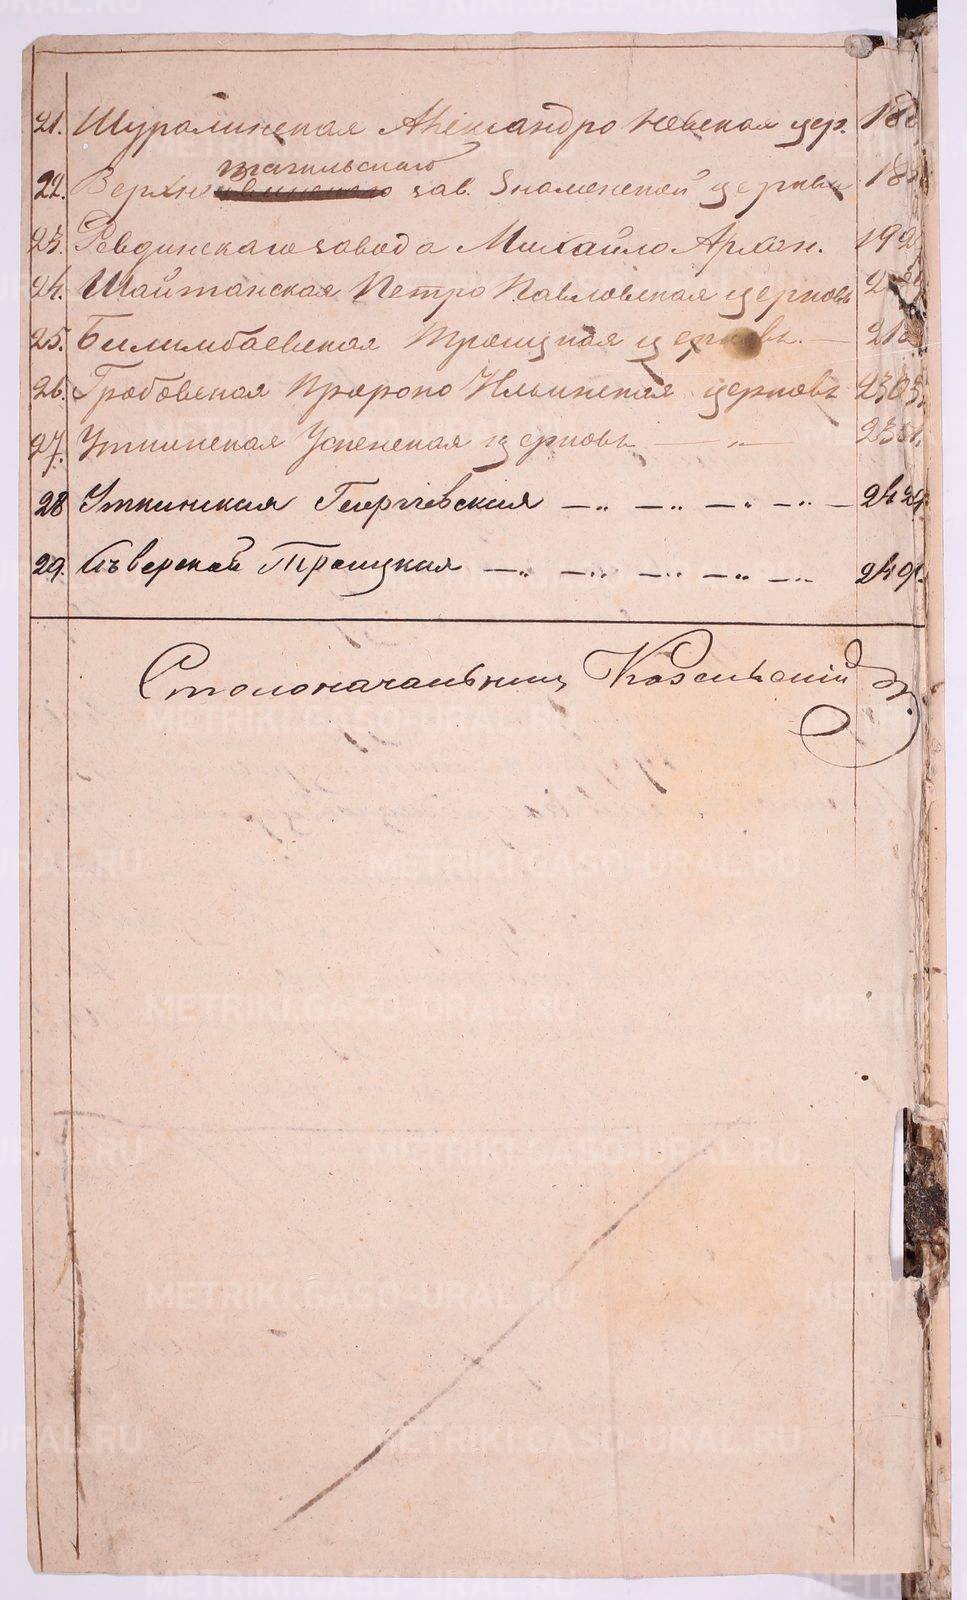 21. Шуралинская Александро Невская цер. 180
тагильскаго
22. Верхне зав. Знаменской церкви 18
23. Ревдинскаго завода МихайлоАрхан. 192
24. Шайтанская Петро Павловская церковь 2
25. Билимбаевская Троицкая церковь. — 218
26. Гробовская Пророко Ильинская церковь 2303
27. Уткинская Успенская церковь — „ — 2351.
28 Уткинская Георгіевская — „ — „ — „ — „ — 2429.
29. Сѣверская Троицкая — „ — „ — „ — „ — „ 2491.
Столоначальникъ
METRIKI.GASO-URAL.RU